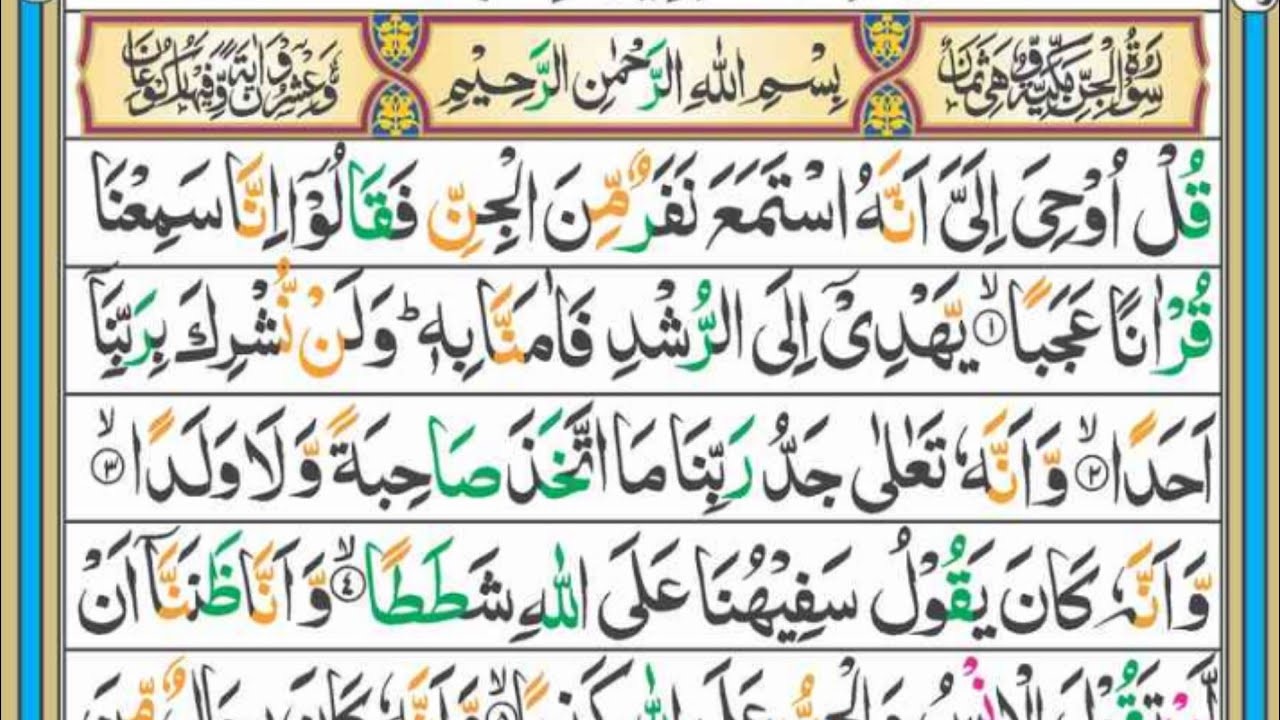 سُوْرَةُ الْجِنِّ مَكِّيَّةٌ وَّهِيَ ثَمَانٌ
بِسْمِ اللهِ الرَّحْمٰنِ الرَّحِيْمِ
وَّعِشْرُوْنَ اٰيَةً وَّفِيْهَا رُكُوْعَانِ
قُلْ اُوْحِىَ اِلَىَّ اَنَّهُ اسْتَمَعَ نَفَرٌ مِّنَ الْجِنِّ فَقَالُوْٓا اِنَّا سَمِعْنَا
قُرْاٰنًا عَجَبًا ۙ‏﴿۱﴾ يَّهْدِىْٓ اِلَى الرُّشْدِ فَاٰمَنَّا بِهٖ ؕ وَلَنْ نُّشْرِكَ بِرَبِّنَاۤ
اَحَدًا ۙ‏﴿۲﴾ وَّاَنَّهٗ تَعٰلٰى جَدُّ رَبِّنَا مَا اتَّخَذَ صَاحِبَةً وَّلَا وَلَدًا ۙ‏﴿۳﴾
وَّاَنَّهٗ كَانَ يَقُوْلُ سَفِيْهُنَا عَلَى اللهِ شَطَطًا ۙ‏﴿۴﴾ وَّاَنَّا ظَنَنَّاۤ اَنْ
لَّنْ تَقُوْلَ الْاِنْسُ وَالْجِنُّ عَلَى اللهِ كَذِبًا ۙ‏﴿۵﴾ وَّاَنَّهٗ كَانَ رِجَالٌ مِّنَ